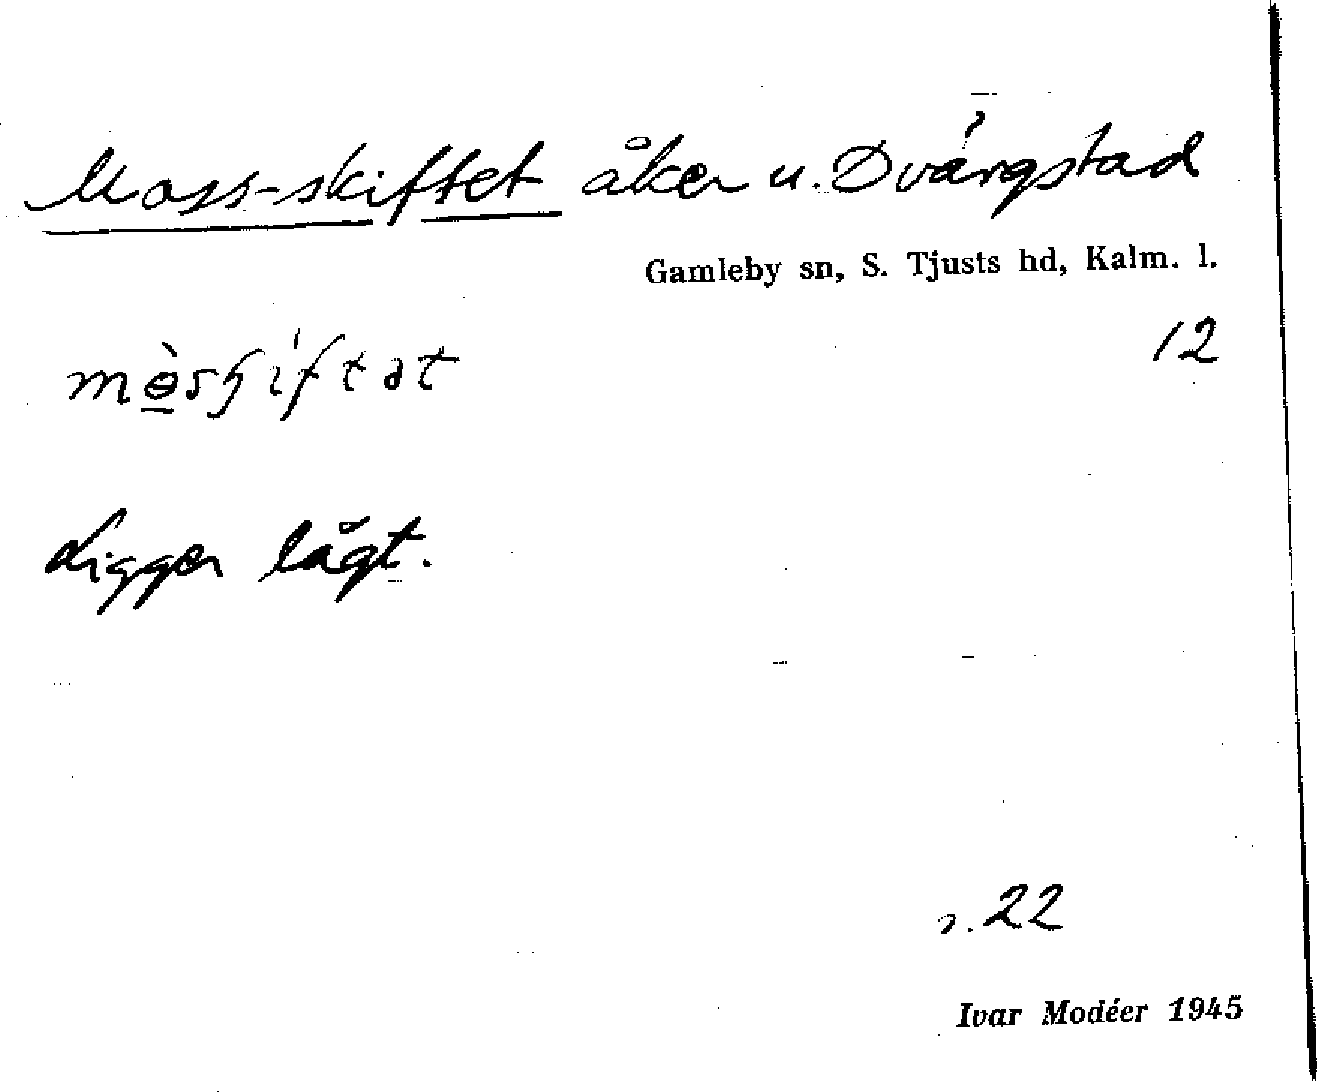 Moss-skiftet åker u. Dvärgstad
Gamleby sn, S. Tjusts hd, Kalm. l.
12
Ligger lågt.
r. 22
Ivar Modéer 1945